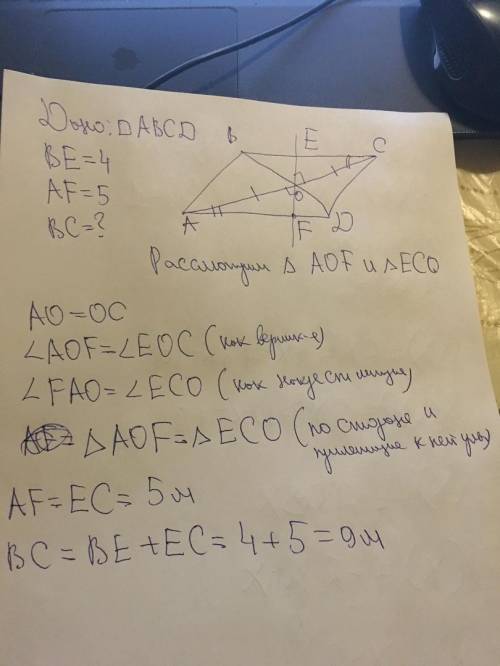 Дано: ▱ABCD
BE=4
AF=5
BC=?
B E C
O
A F D
Рассмотрим △ AOF и △ECO
AO=OC
∠AOF=∠EOC (как вертик-е)
∠FAO=∠ECO (как лежащие)
△AOF=△ECO (по стороне и
прилежащие к ней углы)
AF=EC= 5м
BC = BE+EC= 4+5=9м